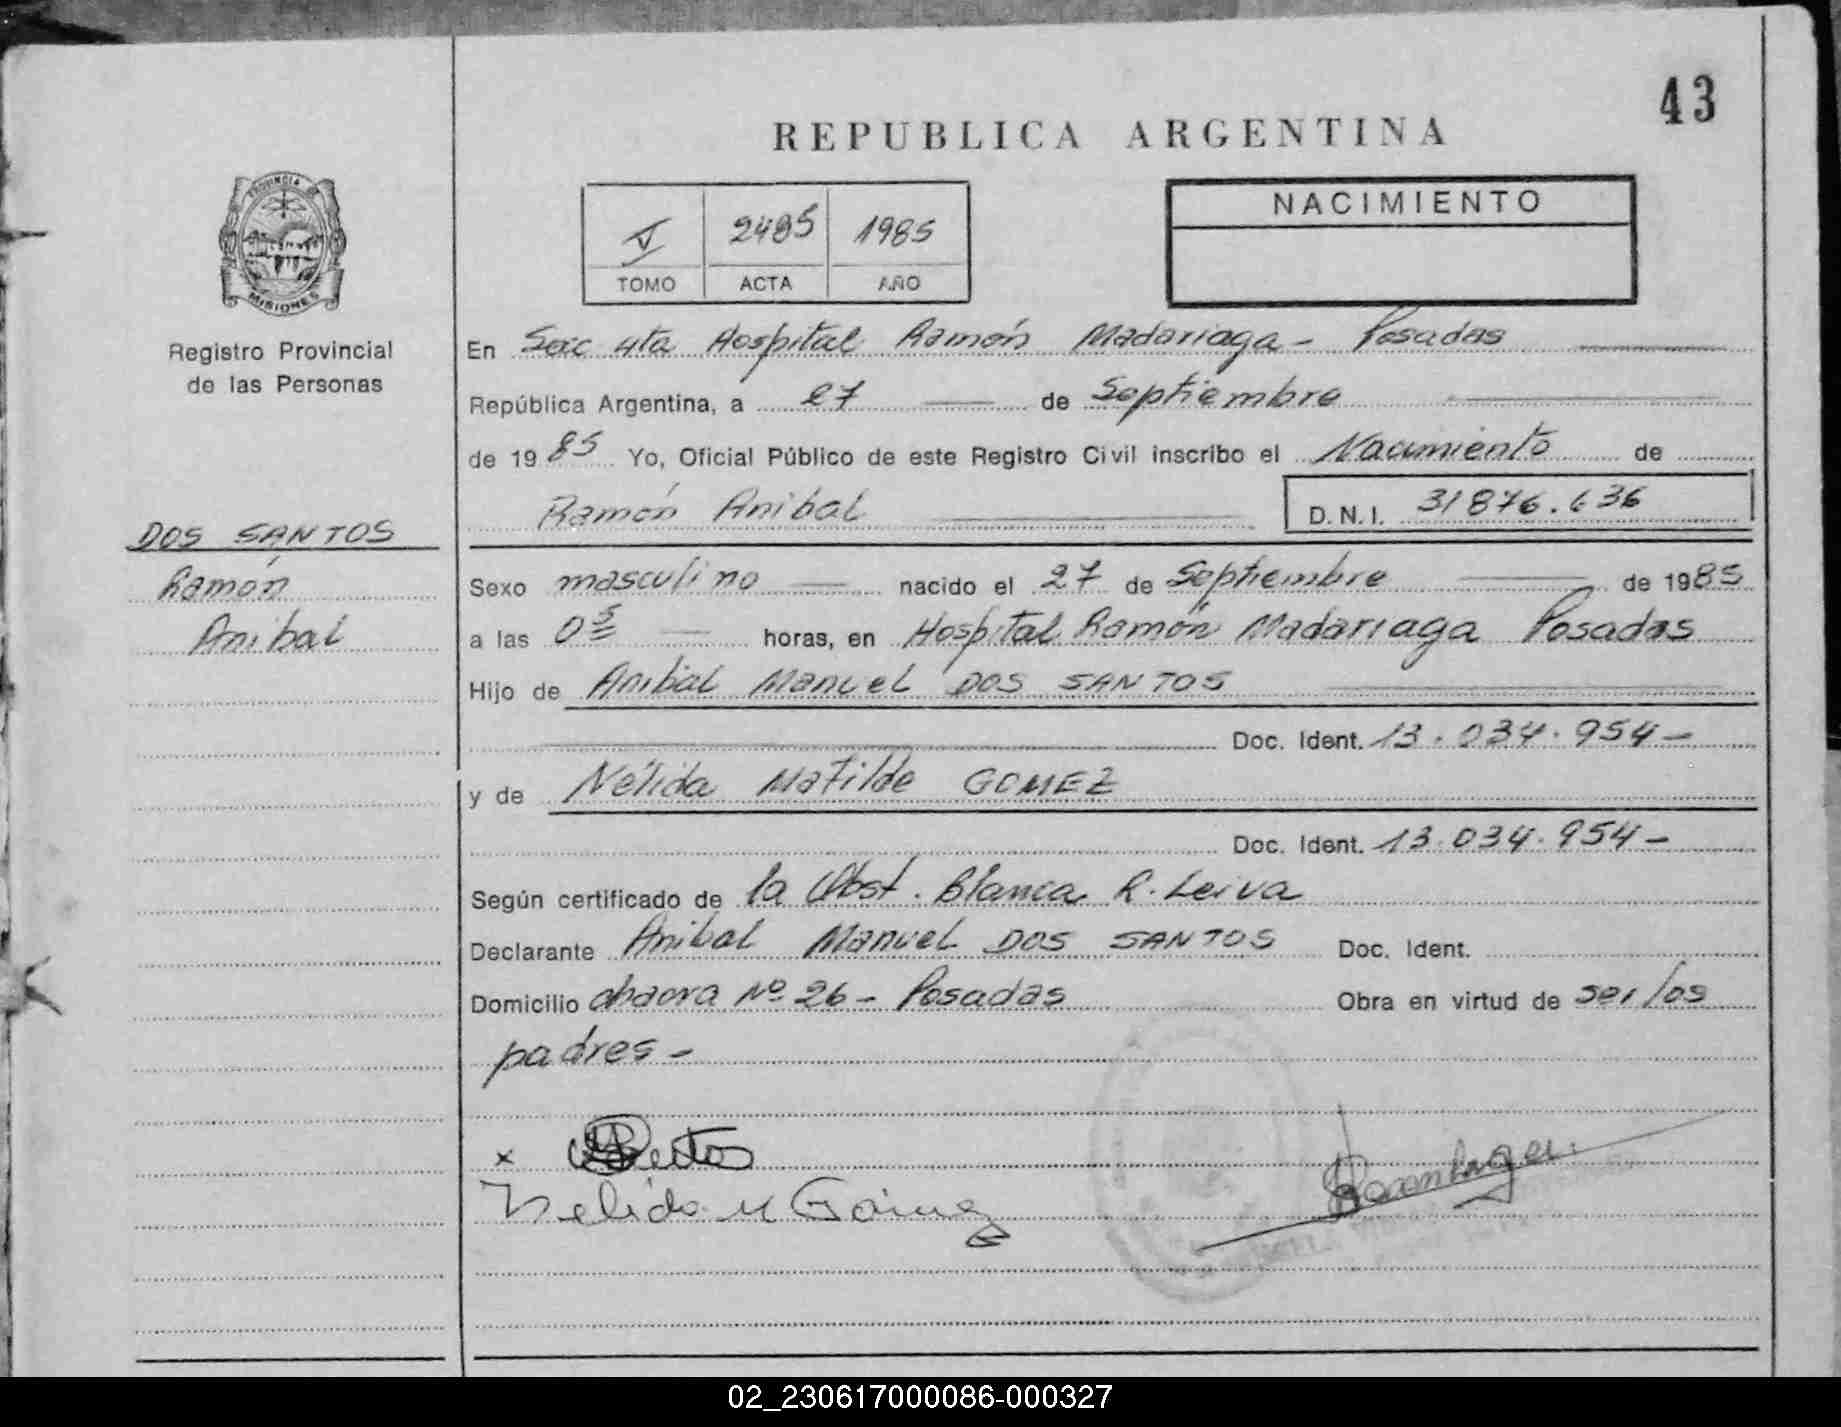 43
REPUBLICA ARGENTINA
PROVINCIA DE
MISIONES
Registro Provincial
de las Personas
V 2485 1985
TOMO ACTA AÑO
NACIMIENTO
En Secc 4ta Hospital Ramón Madariaga - Posadas
República Argentina, a 27 de Septiembre
de 1985 Yo, Oficial Público de este Registro Civil inscribo el Nacimiento de
Ramón Anibal D.N.I. 31876.636
DOS SANTOS
Ramón
Anibal
Sexo masculino nacido el 27 de Septiembre de 1985
a las 0 5 horas, en Hospital Ramón Madariaga Posadas
Hijo de Anibal Manuel DOS SANTOS
Doc. Ident. 13.034.954-
y de Nélida Matilde GOMEZ
Doc. Ident. 13.034.954-
Según certificado de la Obst. Blanca R. Leiva
Declarante Anibal Manuel DOS SANTOS Doc. Ident.
Domicilio chacra Nº 26 - Posadas Obra en virtud de ser los
padres -
x
Nelida M Gómez
02_230617000086-000327